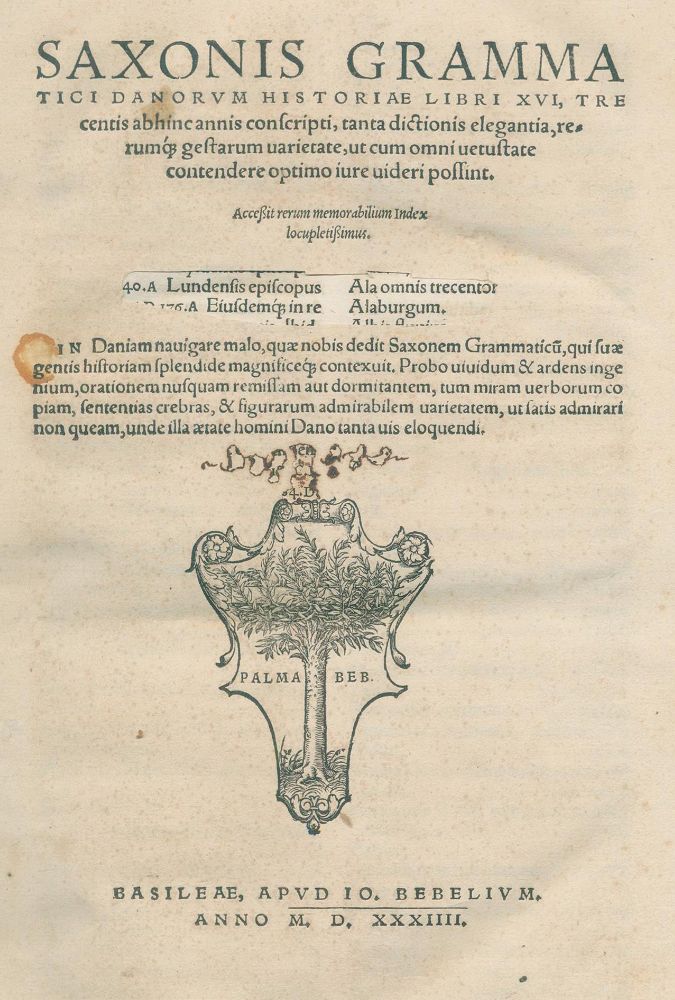 SAXONIS GRAMMA
TICI DANORVM HISTORIAE LIBRI XVI, TRE
centis abhinc annis conſcripti, tanta dictionis elegantia, re⸗
rumq́; geſtarum uarietate, ut cum omni uetuſtate
contendere optimo iure uideri poſsint.
Acceſsit rerum memorabilium Index
locupletiſsimus.
40.A Lundenſis epiſcopus Ala omnis trecentor
176.A Eiuſdemq́; in re Alaburgum.
IN Daniam nauigare malo, quæ nobis dedit Saxonem Grammaticũ, qui ſuæ
gentis hiſtoriam ſplendide magnificeq́; contexuit. Probo uiuidum & ardens inge
nium, orationem nuſquam remiſſam aut dormitantem, tum miram uerborum co
piam, ſententias crebras, & figurarum admirabilem uarietatem, ut ſatis admirari
non queam, unde illa ætate homini Dano tanta uis eloquendi.
PALMA BEB.
BASILEAE, APVD IO. BEBELIVM.
ANNO M. D. XXXIIII.